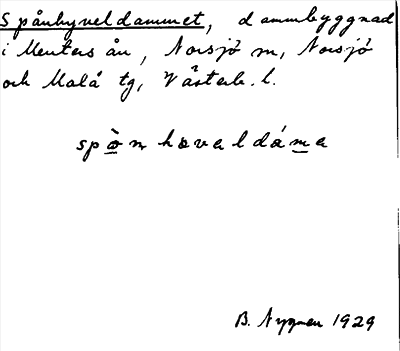 Spånhyveldammet, dammbyggnad
i Menters ån, Norsjö sn, Norsjö
och Malå tg, Västerb. l.
spò̲n høvəldám̲ə
B. Nygren 1929